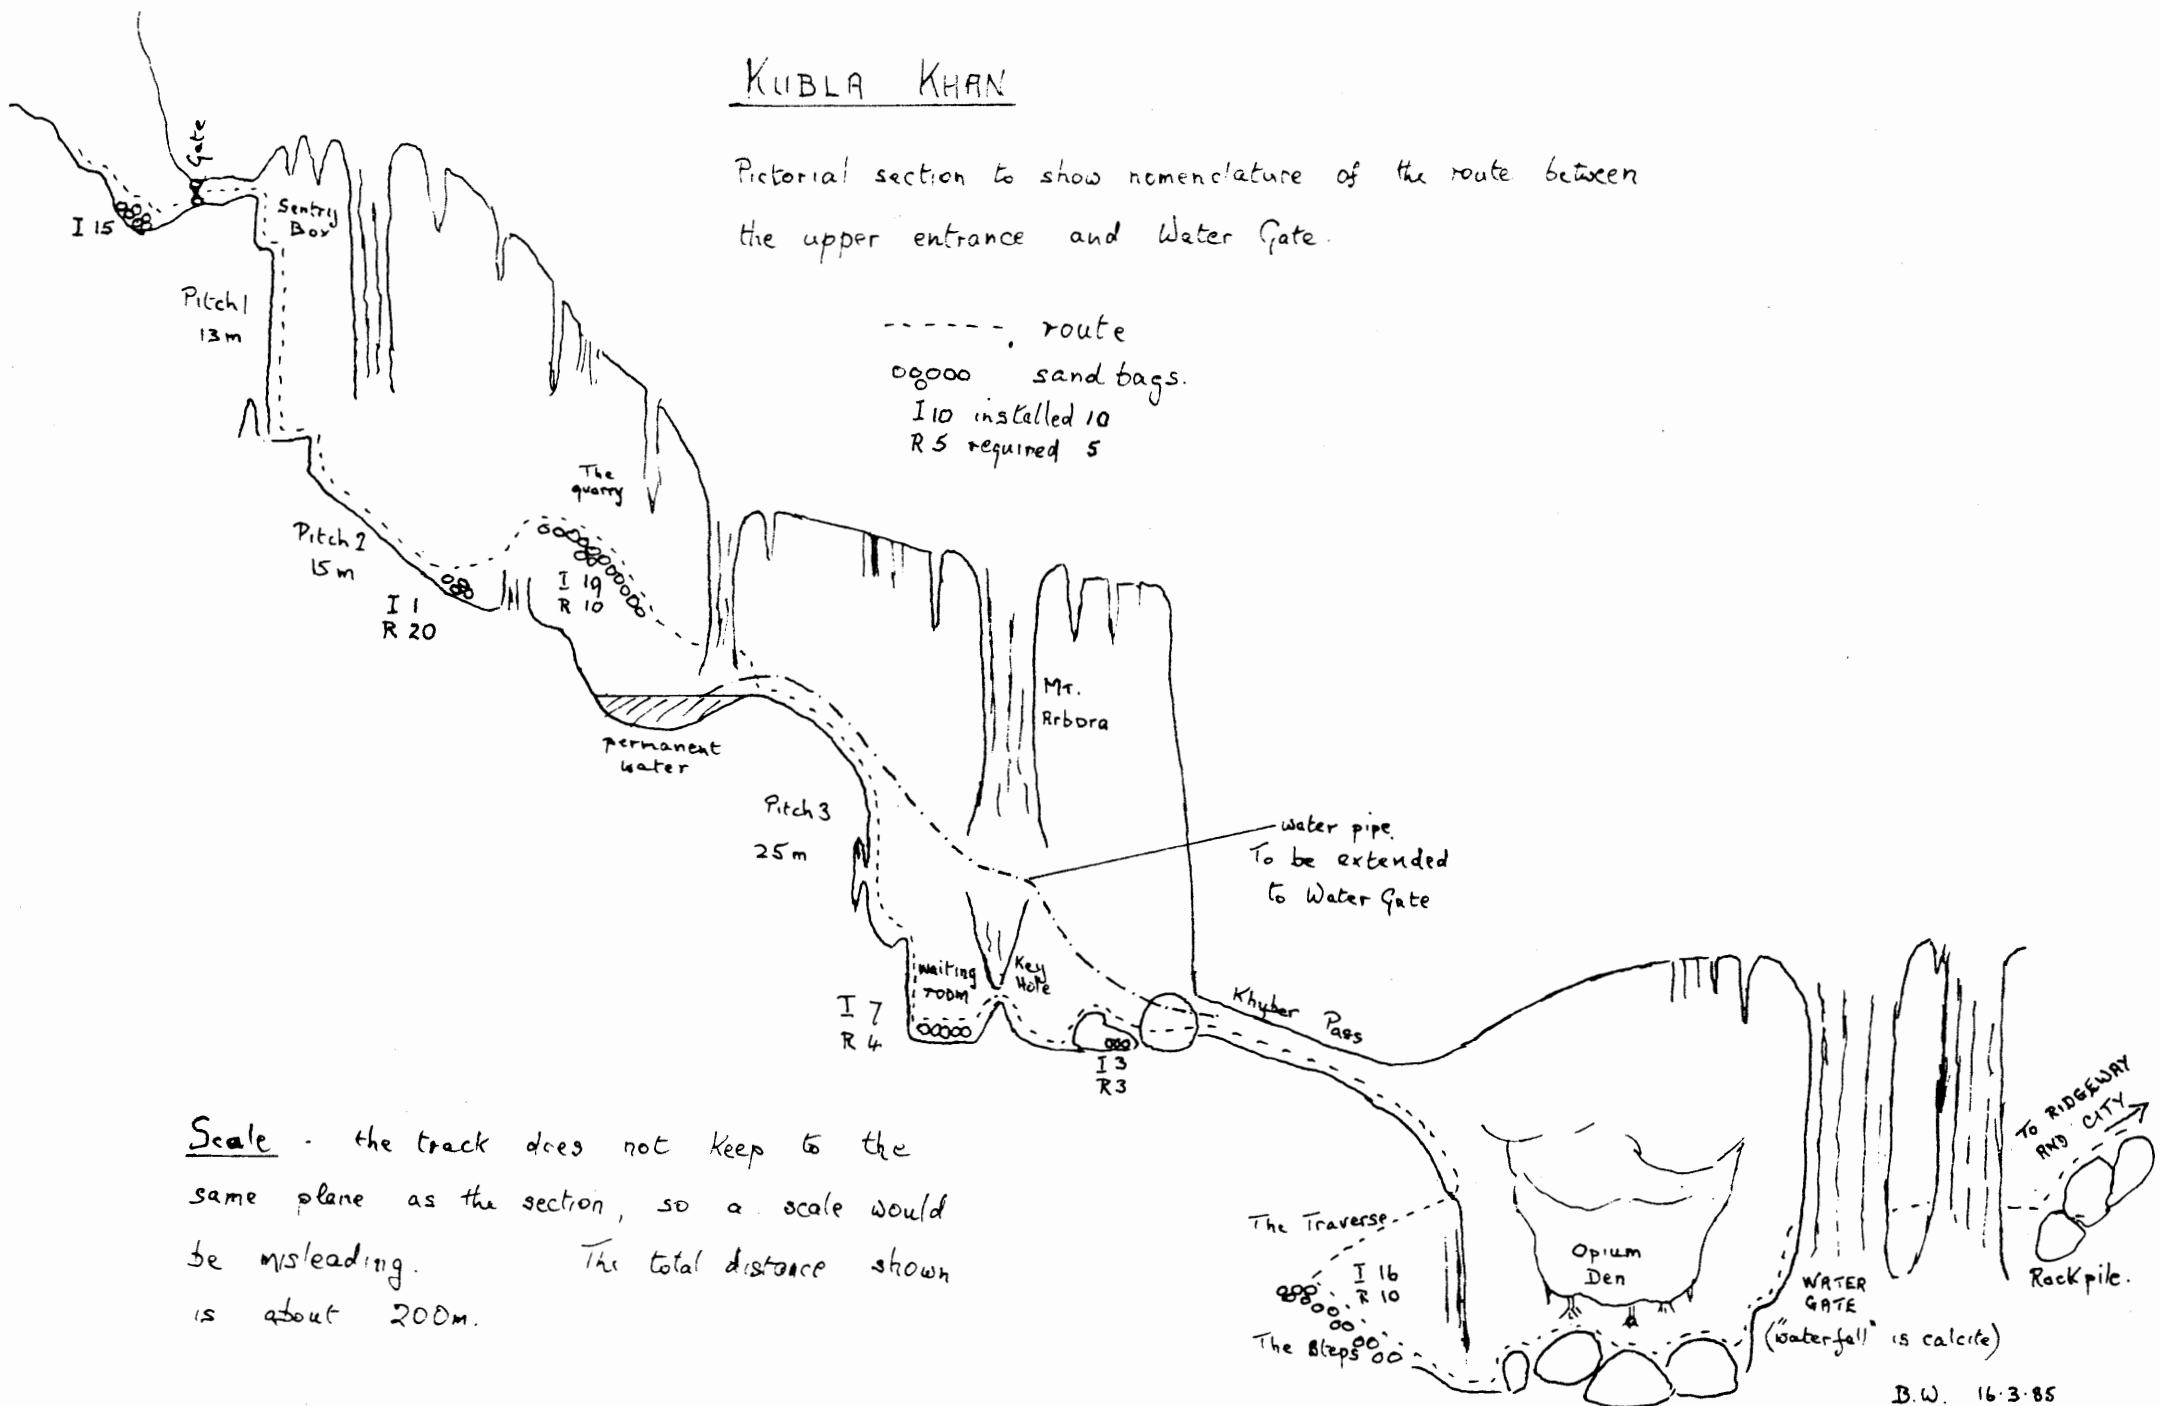 KUBLA KHAN
Pictorial section to show nomenclature of the route between
the upper entrance and Water Gate.
route
sand bags.
I 10 installed 10
R 5 required 5
Gate
I 15
Sentry
Box
Pitch 1
13 m
The
quarry
Pitch 2
15 m
I 1
R 20
I 19
R 10
permanent
water
Mt.
Arbora
Pitch 3
25 m
water pipe.
To be extended
to Water Gate
waiting
room
Key
Hole
I 7
R 4
I 3
R 3
Khyber Pass
Scale - the track does not keep to the
same plane as the section, so a scale would
be misleading. The total distance shown
is about 200m.
The Traverse
I 16
R 10
The Steps
Opium
Den
WATER
GATE
("waterfall" is calcite)
TO RIDGEWAY
AND CITY
Rockpile.
B.W. 16.3.85